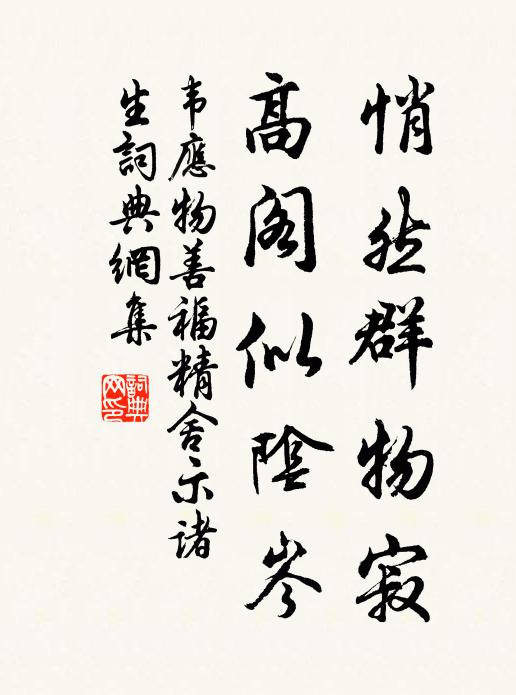 悄然群物寂
高阁似陰岑
韦應物善福精舍示诸
生詞典網集
詞典
网印